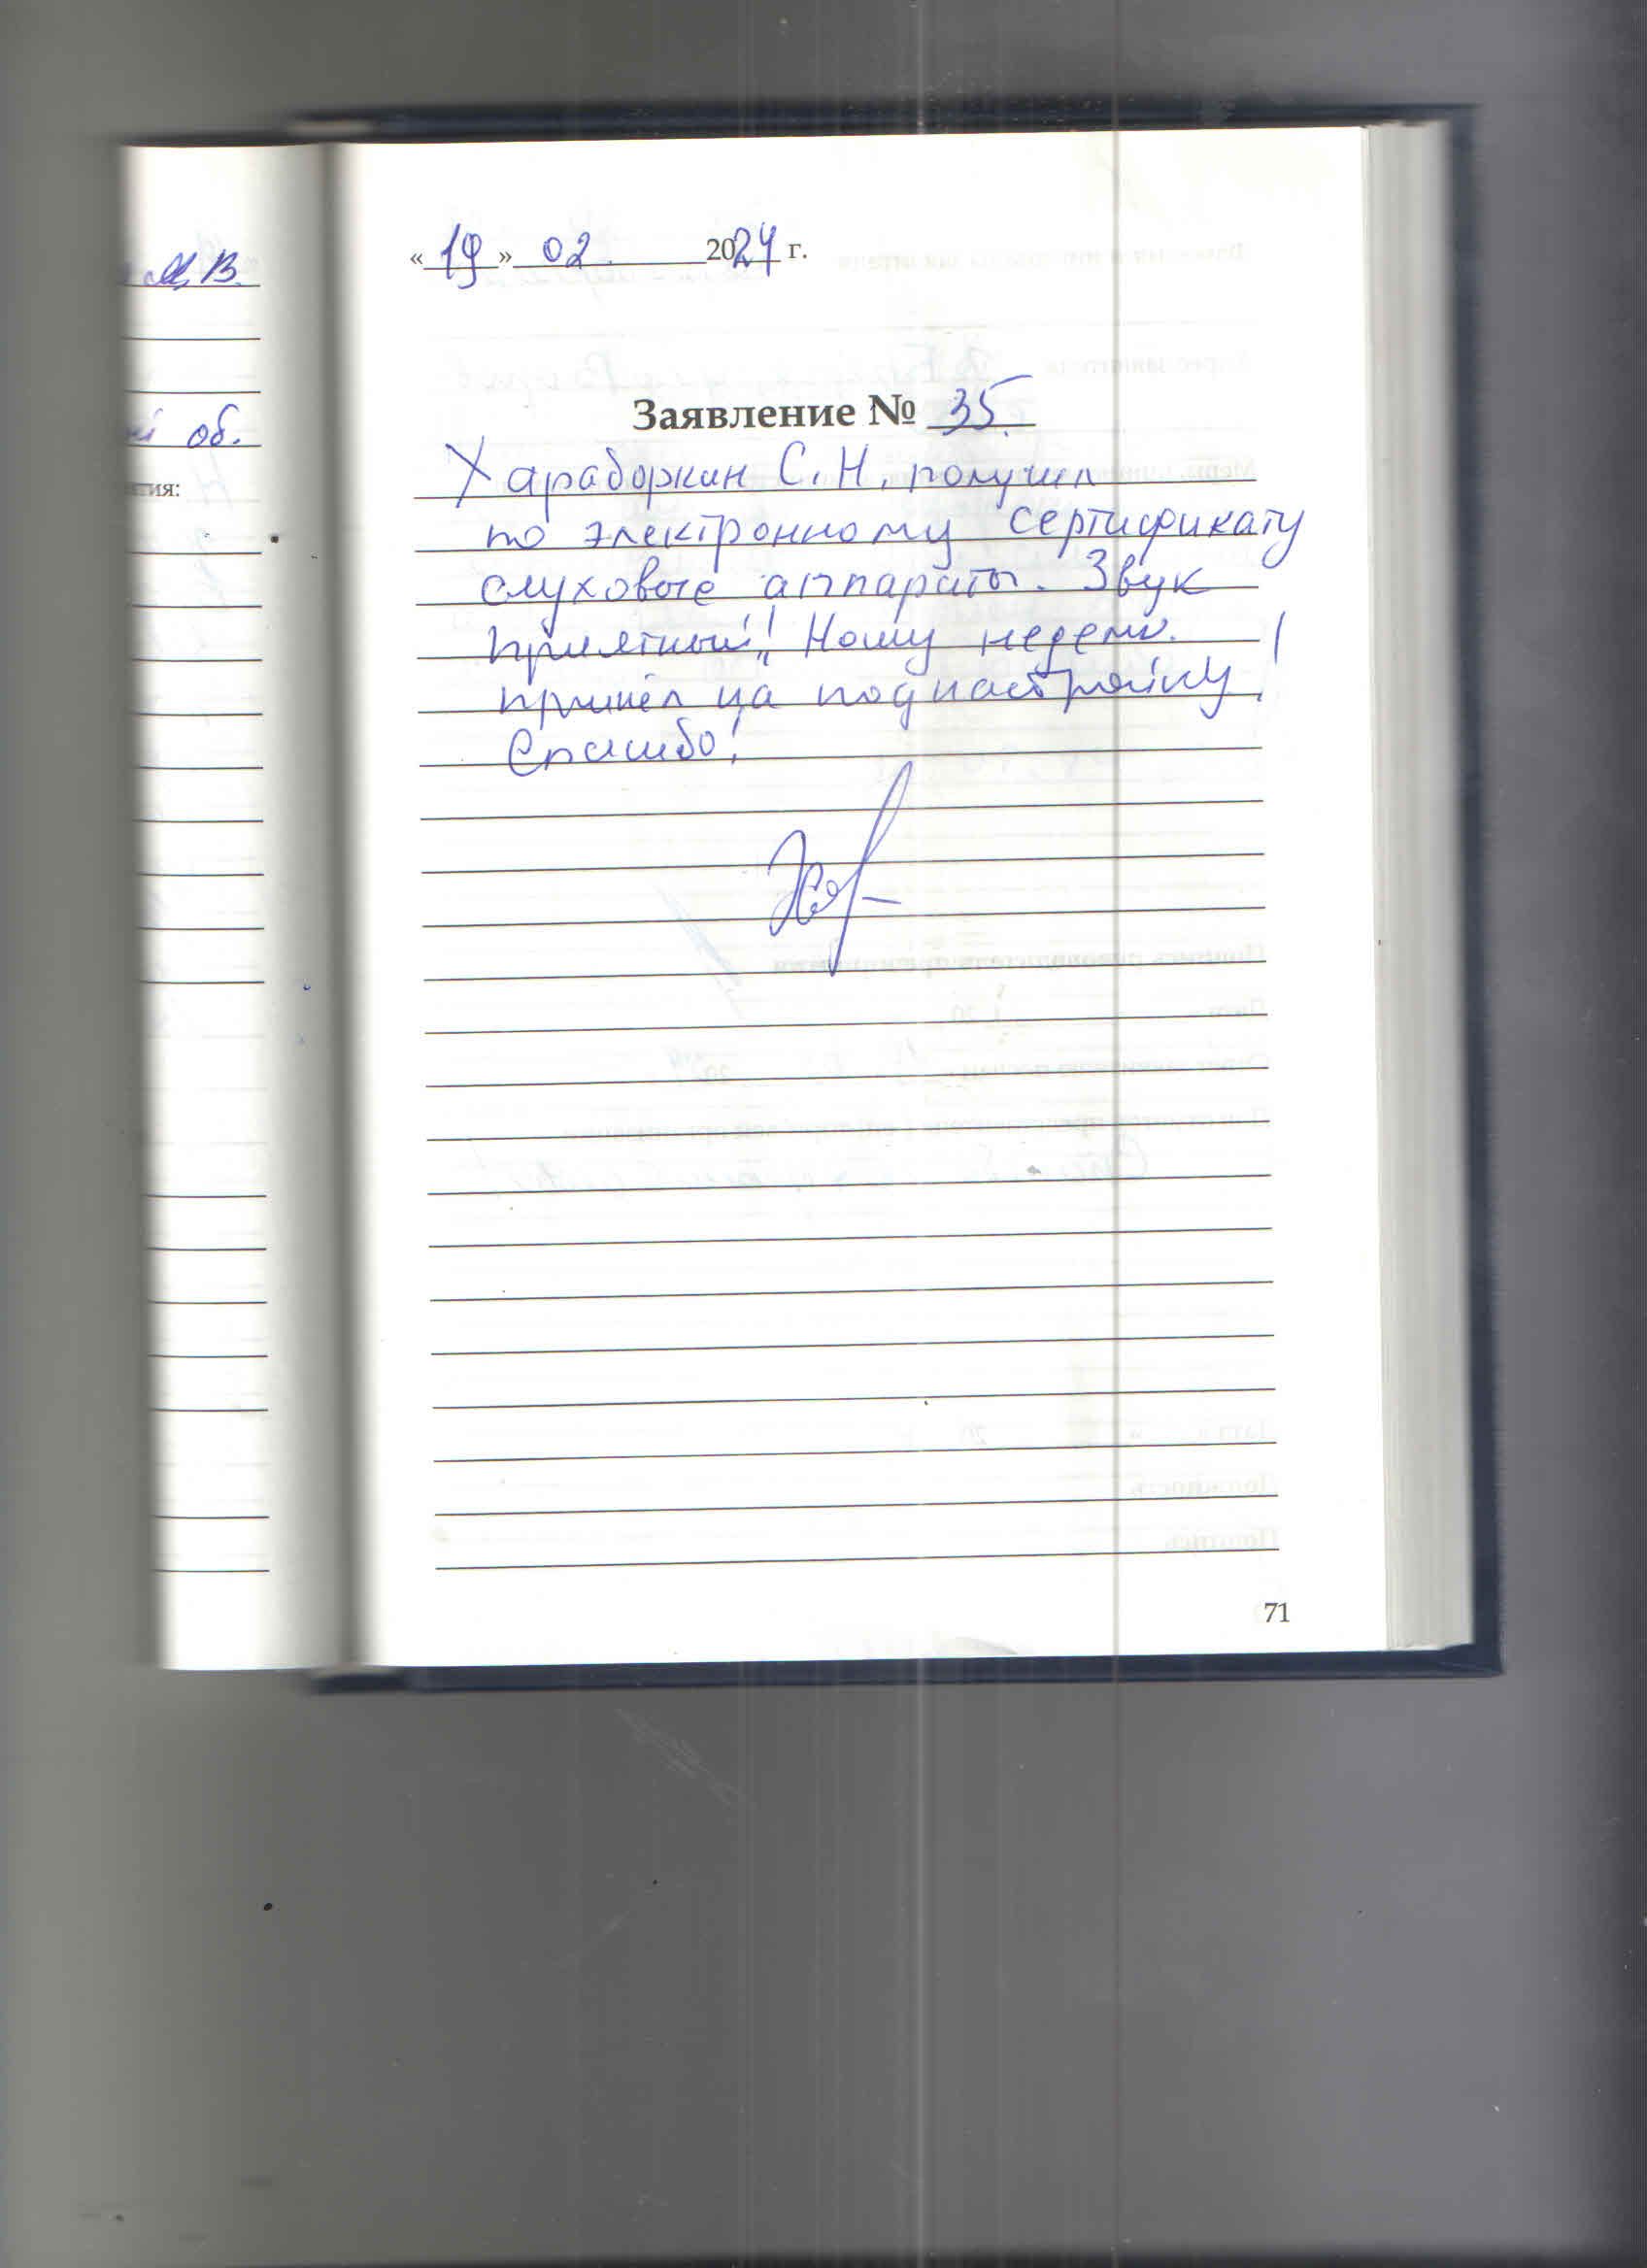 «19» 02. 2024 г.
Заявление № 35.
Хараборкин С. Н. получил
по электронному сертификату
слуховые аппараты. Звук
приятный! Ношу неделю.
пришёл на поднастройку!
Спасибо!
71
В.
об.